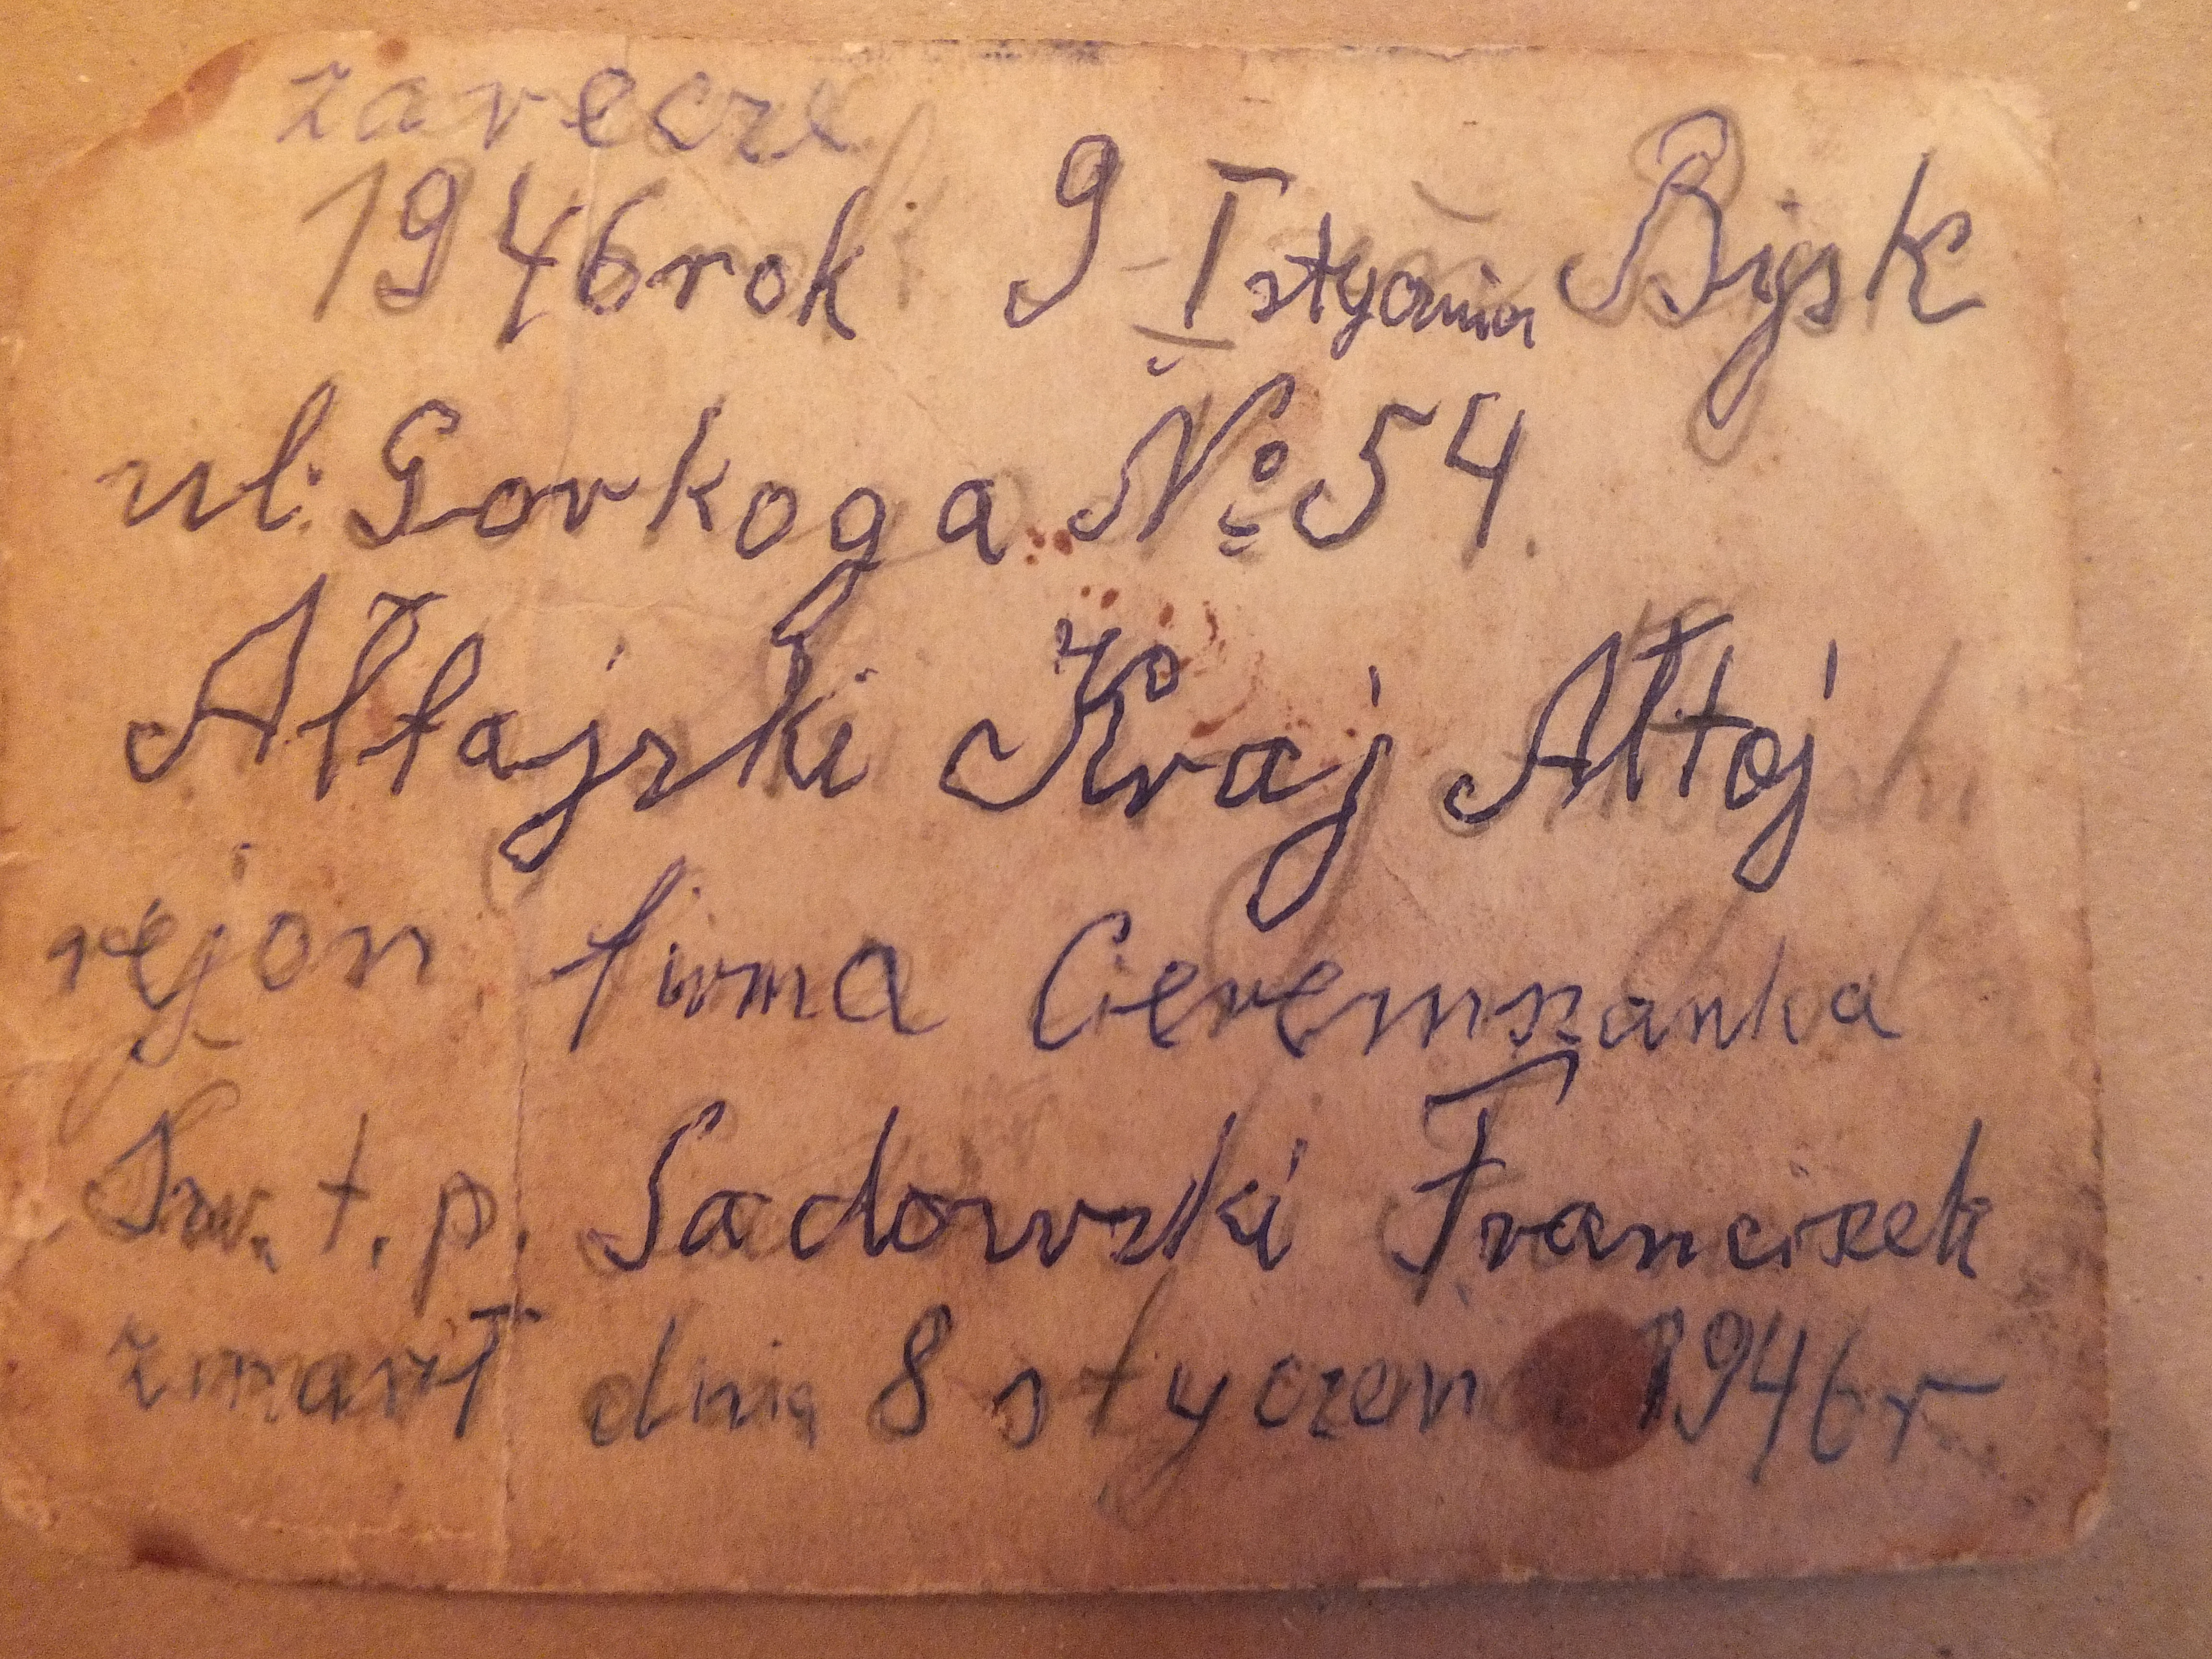 zarecze
1946 rok 9 I stycznia Bijsk
ul. Gorkoga № 54.
Ałtajski Kraj Ałtaj
rejon firma Ceremszanka
Św. t. p. Sadowski Franciszek
zmarł dnia 8 styczen 1946 r